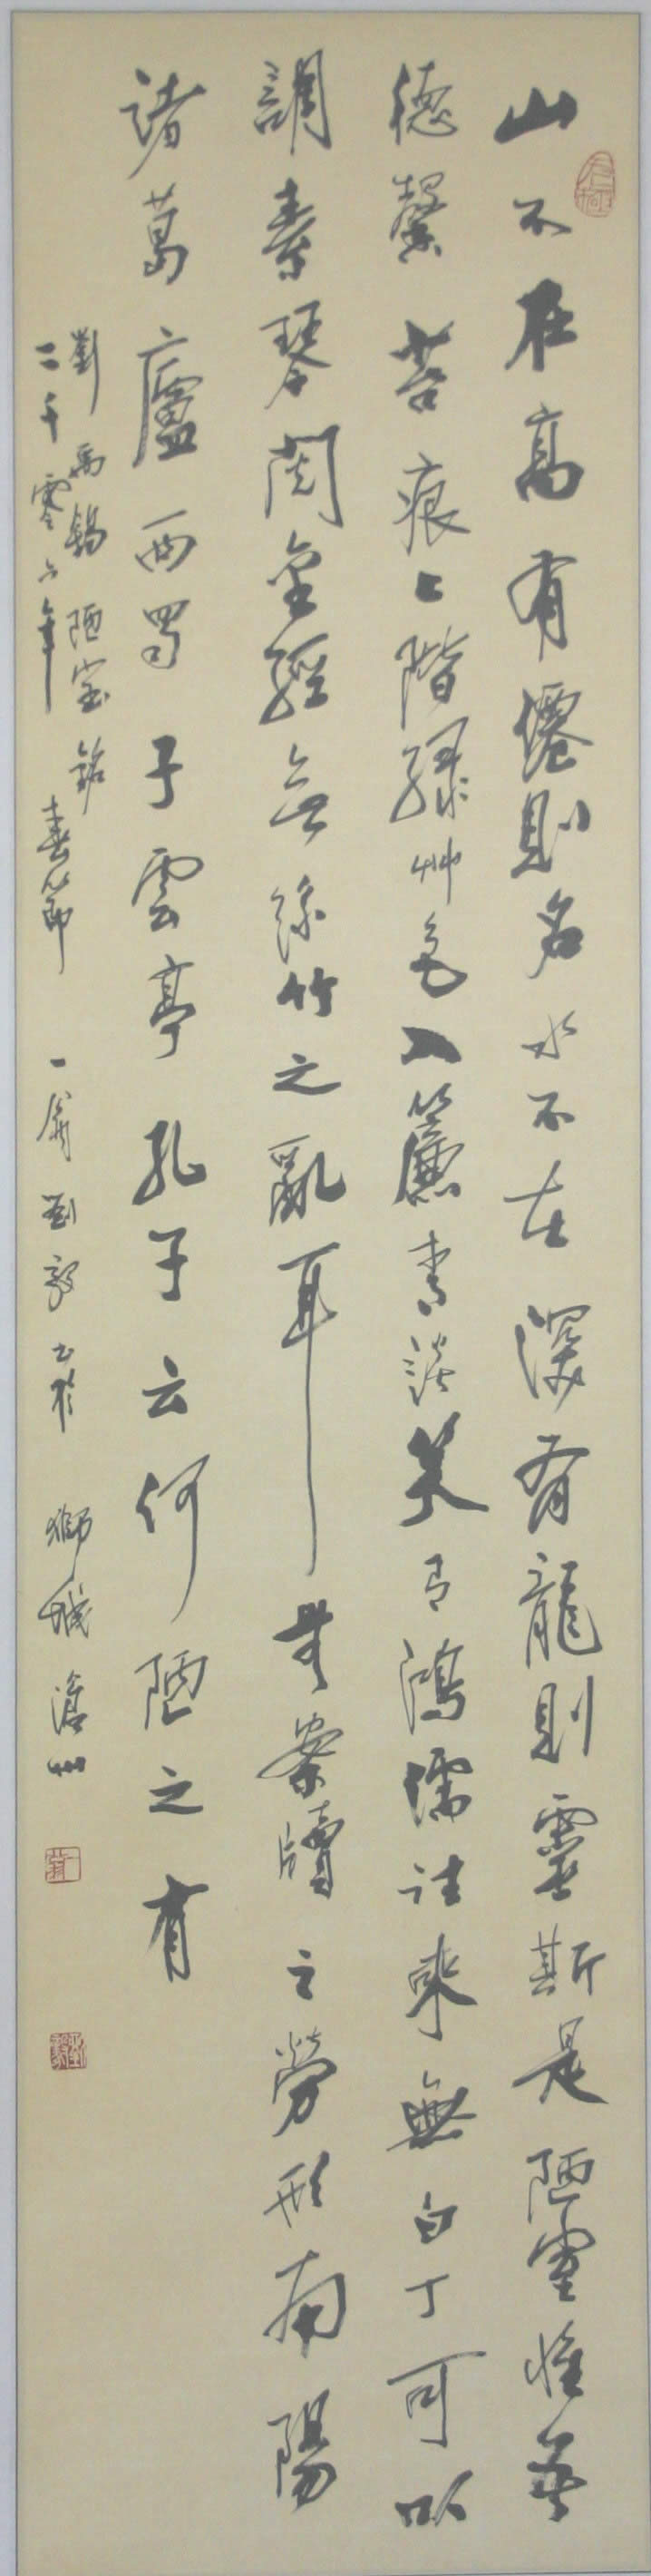 山不在高有僊則名水不在深有龍則靈斯是陋室惟吾
德馨苔痕上階綠艸色入簾青談笑有鴻儒往來無白丁可以
調素琴閱金經無絲竹之亂耳無案牘之勞形南陽
諸葛廬西蜀子雲亭孔子云何陋之有
劉禹錫陋室銘
二千零六年春節一翁劉毅書於獅城滄州